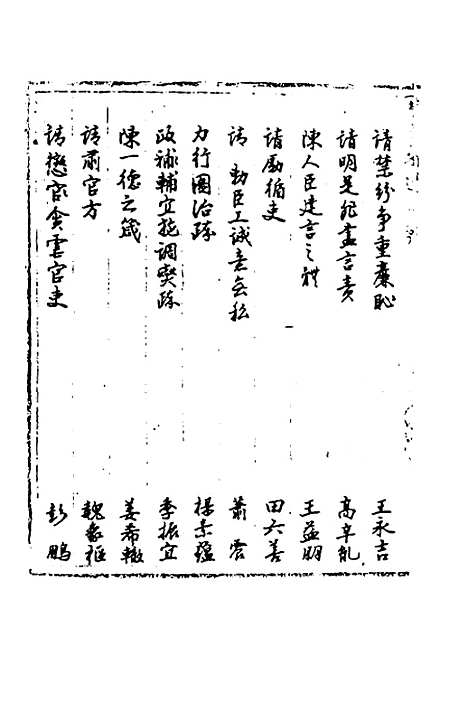 請禁紛爭重廉恥 王永吉
請明是非盡言責 高辛胤
陳人臣建言之體 王益朋
請勵循吏 田六善
請 勅臣工誠意無私 蕭震
力行圖治疏 楊素蘊
政 輔宜 調 疏 季振宜
陳一德之箴 姜希轍
請肅官方 魏象樞
請懲官貪 官吏 彭鵬